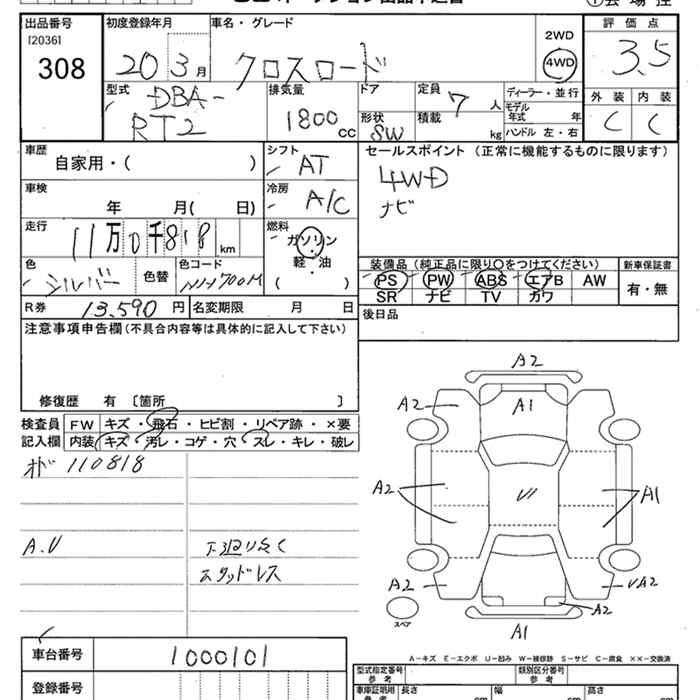 出品番号 初度登録年月 車名・グレード 2WD 評価点
[2036]
308 20 3月 クロスロード 4WD 3.5
型式 排気量 ドア 定員 7人 ディーラー・並行 外装 内装
DBA-
RT2 1800cc 形状 SW 積載 kg モデル年式 年 C C
ハンドル 左・右
車歴 シフト セールスポイント (正常に機能するものに限ります)
自家用・( ) AT 4WD
車検 冷房 ナビ
年 月( 日) A/C
走行 燃料
11万0千818km ガソリン
軽・油
( )
色 色替 色コード 装備品 (純正品に限り○をつけてください) 新車保証書
シルバー NH700M PS PW ABS エアB AW 有・無
SR ナビ TV カワ
R券 13,590円 名変期限 月 日 後日品
注意事項申告欄 (不具合内容等は具体的に記入して下さい)
修復歴 有 〔箇所 〕
検査員 FW キズ・飛石・ヒビ割・リペア跡・×要
記入欄 内装 キズ・汚レ・コゲ・穴・スレ・キレ・破レ
オド 110818
A.V 下廻り多く
スタッドレス
A2
A2 A1
A2 A1
A2 A2
A2
A1
スペア
A-キズ E-エクボ U-凹み W-補修跡 S-サビ C-腐食 ××-交換済
車台番号 1000101
型式指定番号 類別区分番号
参考 参考
登録番号
車庫証明用 長さ 幅 高さ
参考 cm cm cm